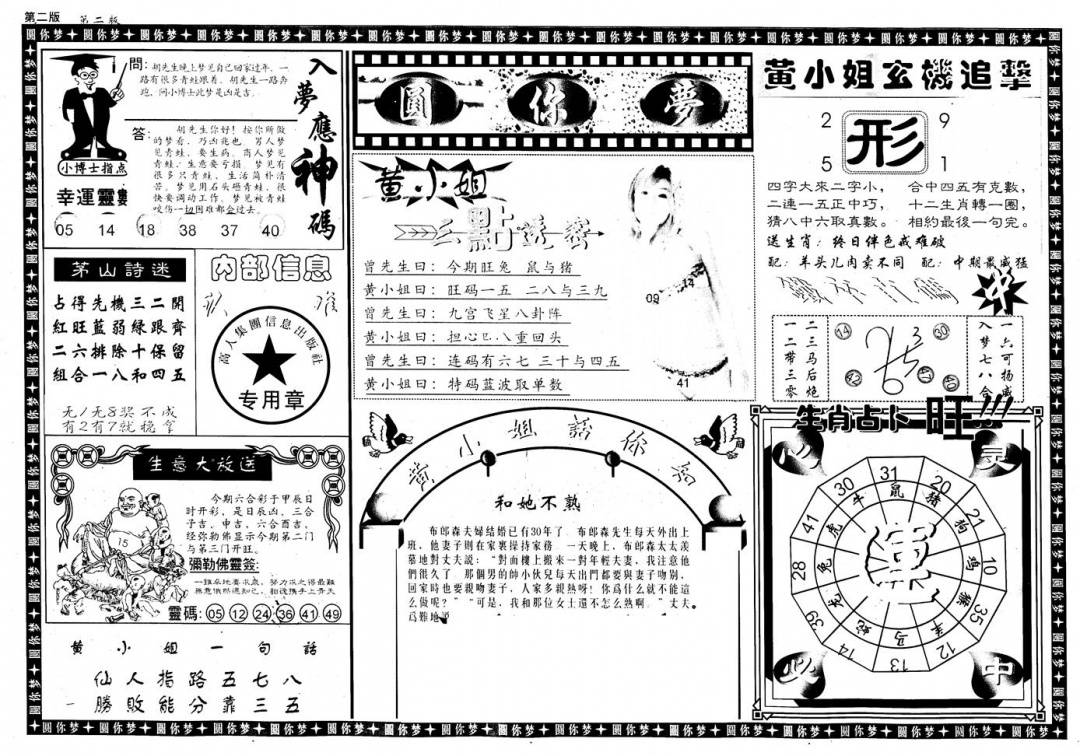 第二版 第二版
圆你梦
入夢應神碼
問:胡先生晚上梦见自己回家过年,一
路有很多青蛙跟着,胡先生一路奔
跑,问小博士此梦是凶是吉。
小博士指点
答:胡先生你好!按你所做
的梦看,乃凶兆也,男人梦
见青蛙,要生病。商人梦见
青蛙,生意要亏损,梦见有
很多只青蛙,生活简朴清
苦。梦见用石头砸青蛙,很
快要调动工作。梦见被青蛙
咬伤一切困难都会过去。
幸運靈數
05 14 18 38 37 40
茅山詩迷
占得先機三二開
紅旺藍弱綠跟齊
二六排除十保留
組合一八一和四五
无1无8奖不成
有2有7就稳拿
内部信息
高人集團信息出版社
专用章
生意大放送
今期六合彩于甲辰日
时开彩,是日辰凶,三合
子吉,申吉,六合酉吉,
经弥勒佛显示今期第二门
与第三门开旺。
15
彌勒佛靈簽:
靈碼:05 12 24 36 41 49
黄小姐一句話
仙人指路五七八
一勝敗能分靠三五
圓你夢
黄小姐
三點透密
曾先生曰:今期旺兔 鼠与猪
黄小姐曰:旺码一五 二八与三九
曾先生曰:九宫飞星八卦阵
黄小姐曰:担心巴八重回头
曾先生曰:连码有六七 三十与四五
黄小姐曰:特码蓝波取单数
09 14
41
黄小姐話你知
和她不熟
布郎森夫婦結婚已有30年了,布郎森先生每天外出上
班,他妻子則在家裏操持家務,一天晚上,布郎森太太羨
慕地對丈夫説:"對面樓上搬來一對年輕夫妻,我注意他
們很久了,那個男的帥小伙兒每天出門都要與妻子吻別,
回家時也要親吻妻子,人家多親熱呀!你爲什么就不能這
么做呢?""可是,我和那位女士還不怎么熱啊。"丈夫
爲難地説
黄小姐玄機追擊
2 9
形
5 1
四字大來二字小, 合中四五有克數,
二連一五正中巧, 十二生肖轉一圈,
猜八中六取真數。 相約最後一句完。
送生肖:终日伴色戒难破
配:羊头儿肉卖不同 配:中期最威猛
中
二三马后炮
一二带三零
14 30
42 47 40
一六可扬威
入梦七八合
生肖占卜 旺!!!
心 灵
31 20 21 10 35 12 13 14 39 28 41 30
鼠 猪 狗 鸡 猴 羊 马 蛇 龙 兔 虎 牛
必 中